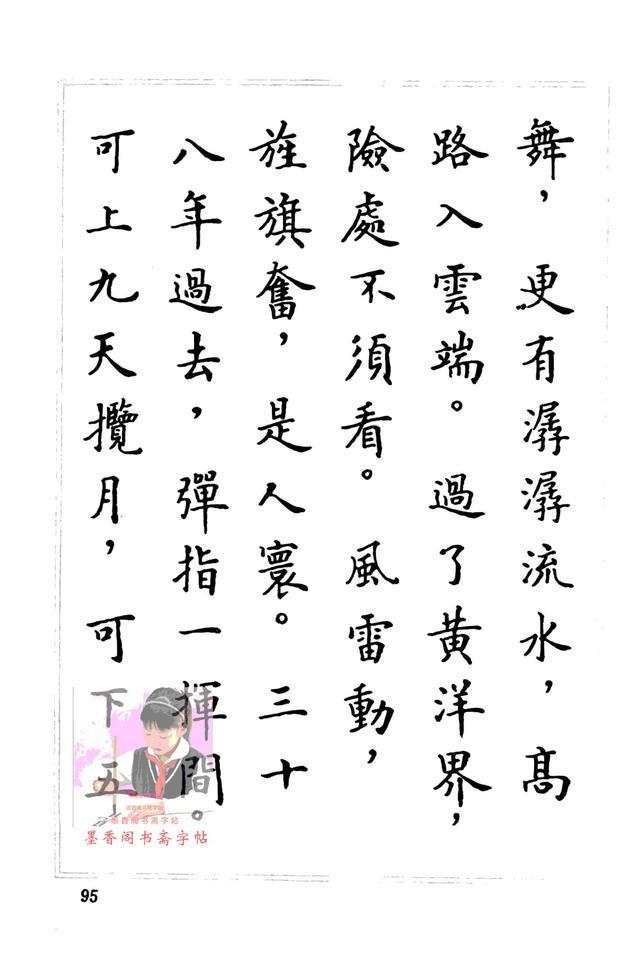 舞，更有潺潺流水，高
路入雲端。過了黃洋界，
險處不須看。風雷動，
旌旗奮，是人寰。三十
八年過去，彈指一揮間。
可上九天攬月，可下五
墨香阁书斋字帖
95